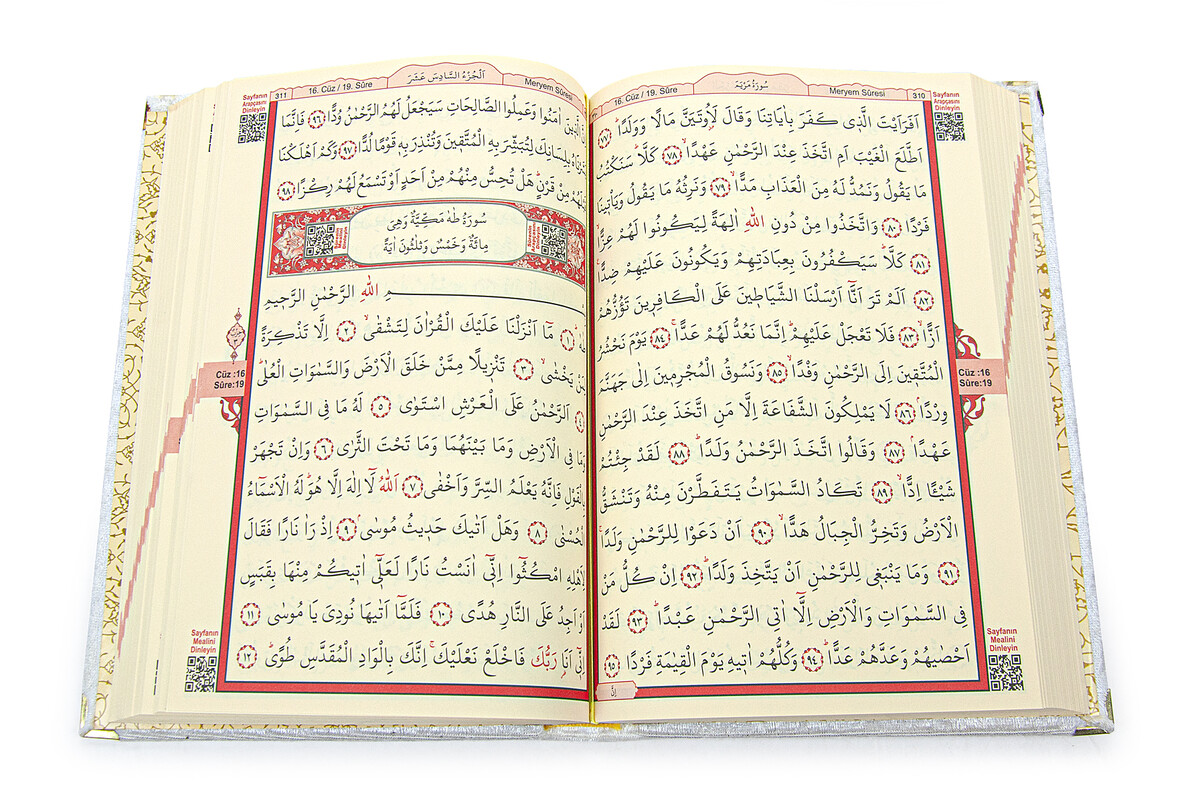 سُورَةُ مَرْيَمَ
16. Cüz / 19. Sûre
Meryem Sûresi
310
Sayfanın
Arapçasını
Dinleyin
اَفَرَاَيْتَ الَّذ۪ي كَفَرَ بِاٰيَاتِنَا وَقَالَ لَاُو۫تَيَنَّ مَالًا وَوَلَدًاۜ ﴿٧٧﴾
اَطَّلَعَ الْغَيْبَ اَمِ اتَّخَذَ عِنْدَ الرَّحْمٰنِ عَهْدًاۙ ﴿٧٨﴾ كَلَّاۜ سَنَكْتُبُ
مَا يَقُولُ وَنَمُدُّ لَهُ مِنَ الْعَذَابِ مَدًّاۙ ﴿٧٩﴾ وَنَرِثُهُ مَا يَقُولُ وَيَأْت۪ينَا
فَرْدًا ﴿٨٠﴾ وَاتَّخَذُوا مِنْ دُونِ اللّٰهِ اٰلِهَةً لِيَكُونُوا لَهُمْ عِزًّاۙ
﴿٨١﴾ كَلَّاۜ سَيَكْفُرُونَ بِعِبَادَتِهِمْ وَيَكُونُونَ عَلَيْهِمْ ضِدًّا۟
﴿٨٢﴾ اَلَمْ تَرَ اَنَّٓا اَرْسَلْنَا الشَّيَاط۪ينَ عَلَى الْكَافِر۪ينَ تَؤُزُّهُمْ
اَزًّاۙ ﴿٨٣﴾ فَلَا تَعْجَلْ عَلَيْهِمْۜ اِنَّمَا نَعُدُّ لَهُمْ عَدًّاۚ ﴿٨٤﴾ يَوْمَ نَحْشُرُ
الْمُتَّق۪ينَ اِلَى الرَّحْمٰنِ وَفْدًاۙ ﴿٨٥﴾ وَنَسُوقُ الْمُجْرِم۪ينَ اِلٰى جَهَنَّمَ
وِرْدًاۢ ﴿٨٦﴾ لَا يَمْلِكُونَ الشَّفَاعَةَ اِلَّا مَنِ اتَّخَذَ عِنْدَ الرَّحْمٰنِ
عَهْدًاۢ ﴿٨٧﴾ وَقَالُوا اتَّخَذَ الرَّحْمٰنُ وَلَدًاۜ ﴿٨٨﴾ لَقَدْ جِئْتُمْ
شَيْـًٔا اِدًّاۙ ﴿٨٩﴾ تَكَادُ السَّمٰوَاتُ يَتَفَطَّرْنَ مِنْهُ وَتَنْشَقُّ
الْاَرْضُ وَتَخِرُّ الْجِبَالُ هَدًّاۙ ﴿٩٠﴾ اَنْ دَعَوْا لِلرَّحْمٰنِ وَلَدًاۚ
﴿٩١﴾ وَمَا يَنْبَغ۪ي لِلرَّحْمٰنِ اَنْ يَتَّخِذَ وَلَدًاۜ ﴿٩٢﴾ اِنْ كُلُّ مَنْ
فِي السَّمٰوَاتِ وَالْاَرْضِ اِلَّٓا اٰتِي الرَّحْمٰنِ عَبْدًاۜ ﴿٩٣﴾ لَقَدْ
اَحْصٰيهُمْ وَعَدَّهُمْ عَدًّاۜ ﴿٩٤﴾ وَكُلُّهُمْ اٰت۪يهِ يَوْمَ الْقِيٰمَةِ فَرْدًا ﴿٩٥﴾
اِنَّ
Cüz :16
Sûre:19
Sayfanın
Mealini
Dinleyin
اَلْجُزْءُ السَّادِسَ عَشَرَ
311
16. Cüz / 19. Sûre
Meryem Sûresi
Sayfanın
Arapçasını
Dinleyin
الَّذ۪ينَ اٰمَنُوا وَعَمِلُوا الصَّالِحَاتِ سَيَجْعَلُ لَهُمُ الرَّحْمٰنُ وُدًّا ﴿٩٦﴾ فَاِنَّمَا
بِلِسَانِكَ لِتُبَشِّرَ بِهِ الْمُتَّق۪ينَ وَتُنْذِرَ بِه۪ قَوْمًا لُدًّا ﴿٩٧﴾ وَكَمْ اَهْلَكْنَا
قَبْلَهُمْ مِنْ قَرْنٍۜ هَلْ تُحِسُّ مِنْهُمْ مِنْ اَحَدٍ اَوْ تَسْمَعُ لَهُمْ رِكْزًا ﴿٩٨﴾
سُورَةُ طٰهٰ مَكِّيَّةٌ وَهِيَ
مِائَةٌ وَخَمْسٌ وَثَلٰثُونَ اٰيَةً
بِسْمِ اللّٰهِ الرَّحْمٰنِ الرَّح۪يمِ
طٰهٰۜ ﴿١﴾ مَٓا اَنْزَلْنَا عَلَيْكَ الْقُرْاٰنَ لِتَشْقٰىۙ ﴿٢﴾ اِلَّا تَذْكِرَةً
لِمَنْ يَخْشٰىۙ ﴿٣﴾ تَنْز۪يلًا مِمَّنْ خَلَقَ الْاَرْضَ وَالسَّمٰوَاتِ الْعُلٰىۜ
﴿٤﴾ اَلرَّحْمٰنُ عَلَى الْعَرْشِ اسْتَوٰى ﴿٥﴾ لَهُ مَا فِي السَّمٰوَاتِ
وَمَا فِي الْاَرْضِ وَمَا بَيْنَهُمَا وَمَا تَحْتَ الثَّرٰى ﴿٦﴾ وَاِنْ تَجْهَرْ
بِالْقَوْلِ فَاِنَّهُ يَعْلَمُ السِّرَّ وَاَخْفٰى ﴿٧﴾ اَللّٰهُ لَٓا اِلٰهَ اِلَّا هُوَۜ لَهُ الْاَسْمَٓاءُ
الْحُسْنٰى ﴿٨﴾ وَهَلْ اَتٰيكَ حَد۪يثُ مُوسٰىۢ ﴿٩﴾ اِذْ رَاٰ نَارًا فَقَالَ
لِاَهْلِهِ امْكُثُٓوا اِنّ۪ٓي اٰنَسْتُ نَارًا لَعَلّ۪ٓي اٰت۪يكُمْ مِنْهَا بِقَبَسٍ
اَوْ اَجِدُ عَلَى النَّارِ هُدًى ﴿١٠﴾ فَلَمَّٓا اَتٰيهَا نُودِيَ يَا مُوسٰى ﴿١١﴾
اِنّ۪ٓي اَنَا۬ رَبُّكَ فَاخْلَعْ نَعْلَيْكَۚ اِنَّكَ بِالْوَادِ الْمُقَدَّسِ طُوًىۜ ﴿١٢﴾
Cüz :16
Sûre:19
Sayfanın
Mealini
Dinleyin